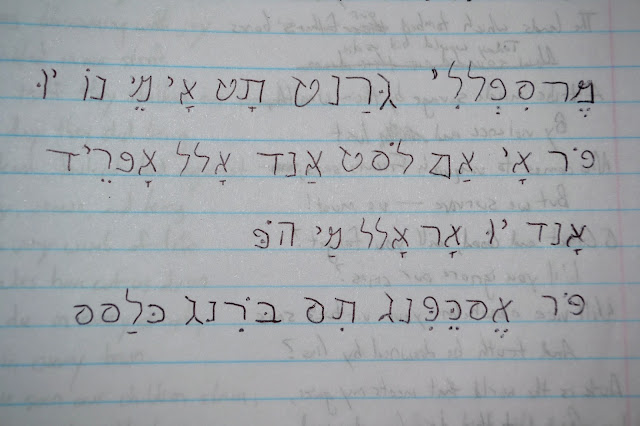 מֶרסִפֻללִי גרַנט תָט אָי מֵי נוֹ יוּ
פֹר אָי אַם לֹסט אַנד אָלל אָפרֵיד
אָנד יוּ אָר אָלל מַי הֹפּ
פֹר אֶסכֵּפִנג תִס בֹּרִנג כּלַסס